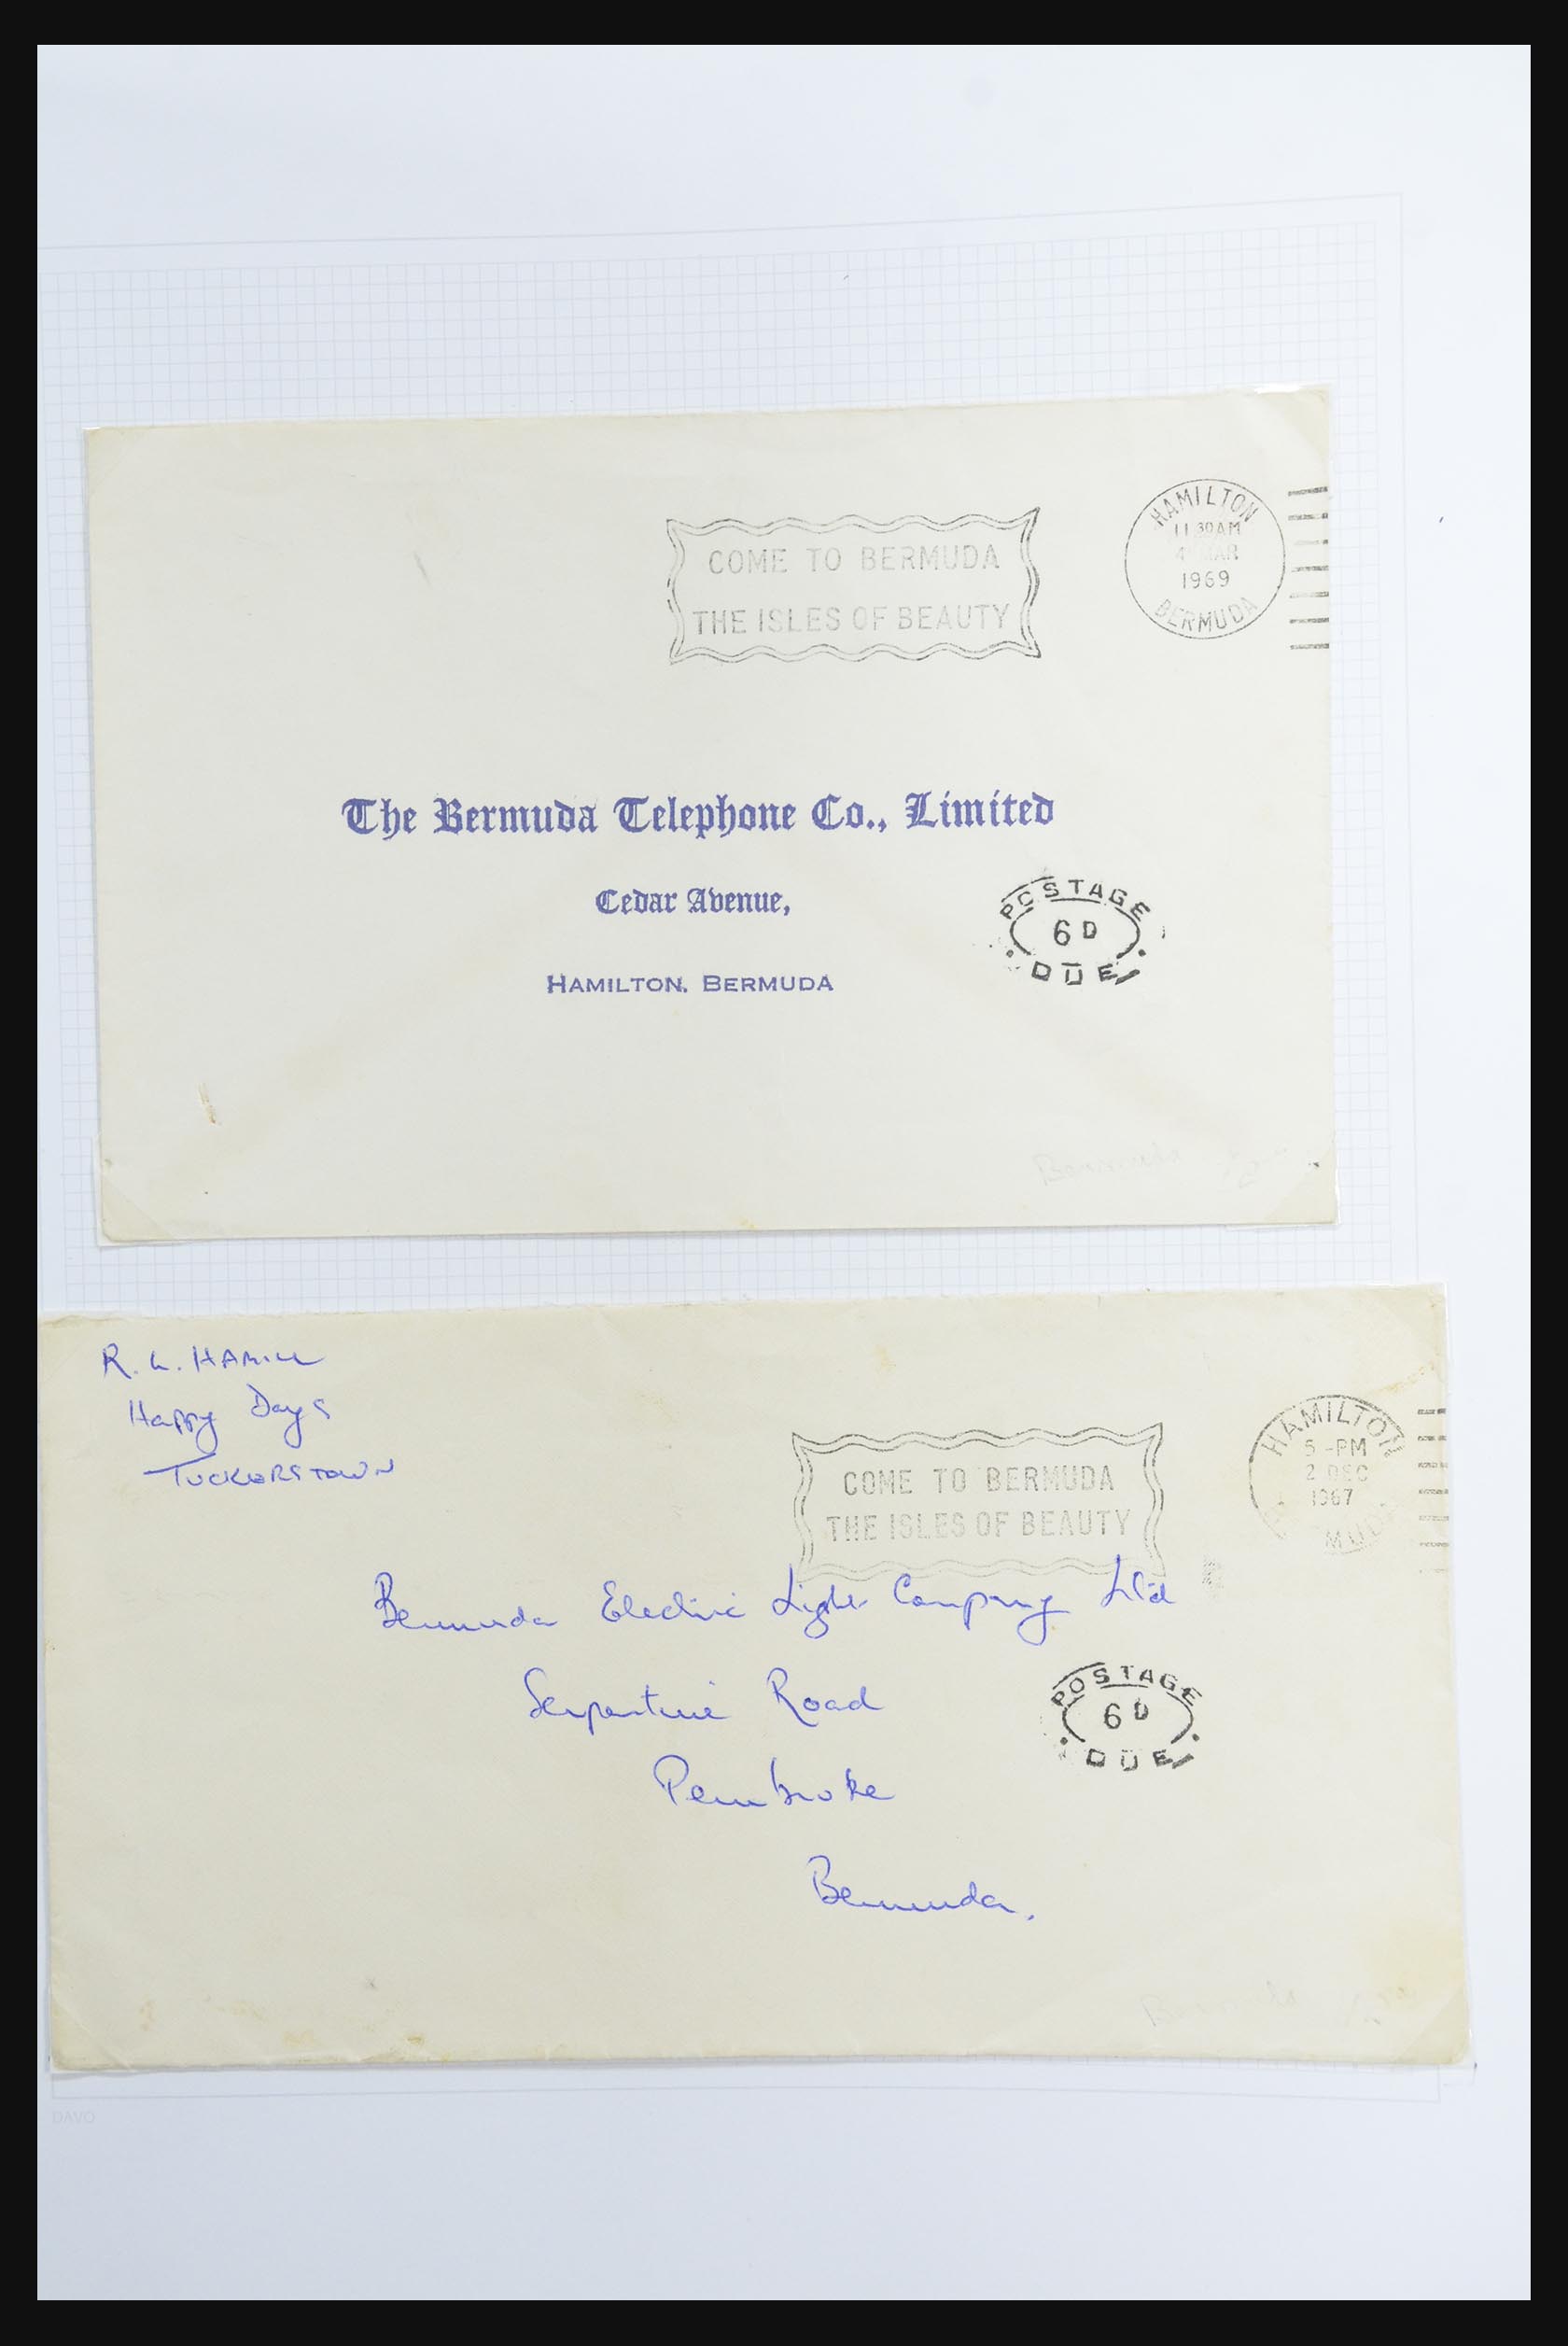 COME TO BERMUDA
THE ISLES OF BEAUTY
HAMILTON
11 30 AM
4 MAR
1969
BERMUDA
The Bermuda Telephone Co., Limited
Cedar Avenue,
HAMILTON, BERMUDA
POSTAGE
6D
DUE
Bermuda
R. L. HAMILL
Happy Days
TUCKERSTOWN
COME TO BERMUDA
THE ISLES OF BEAUTY
HAMILTON
5 -PM
2 DEC
1967
MUD
Bermuda Electric Light Company Ltd
Serpentine Road
Pembroke
Bermuda.
POSTAGE
6D
DUE
Bermuda
DAVO